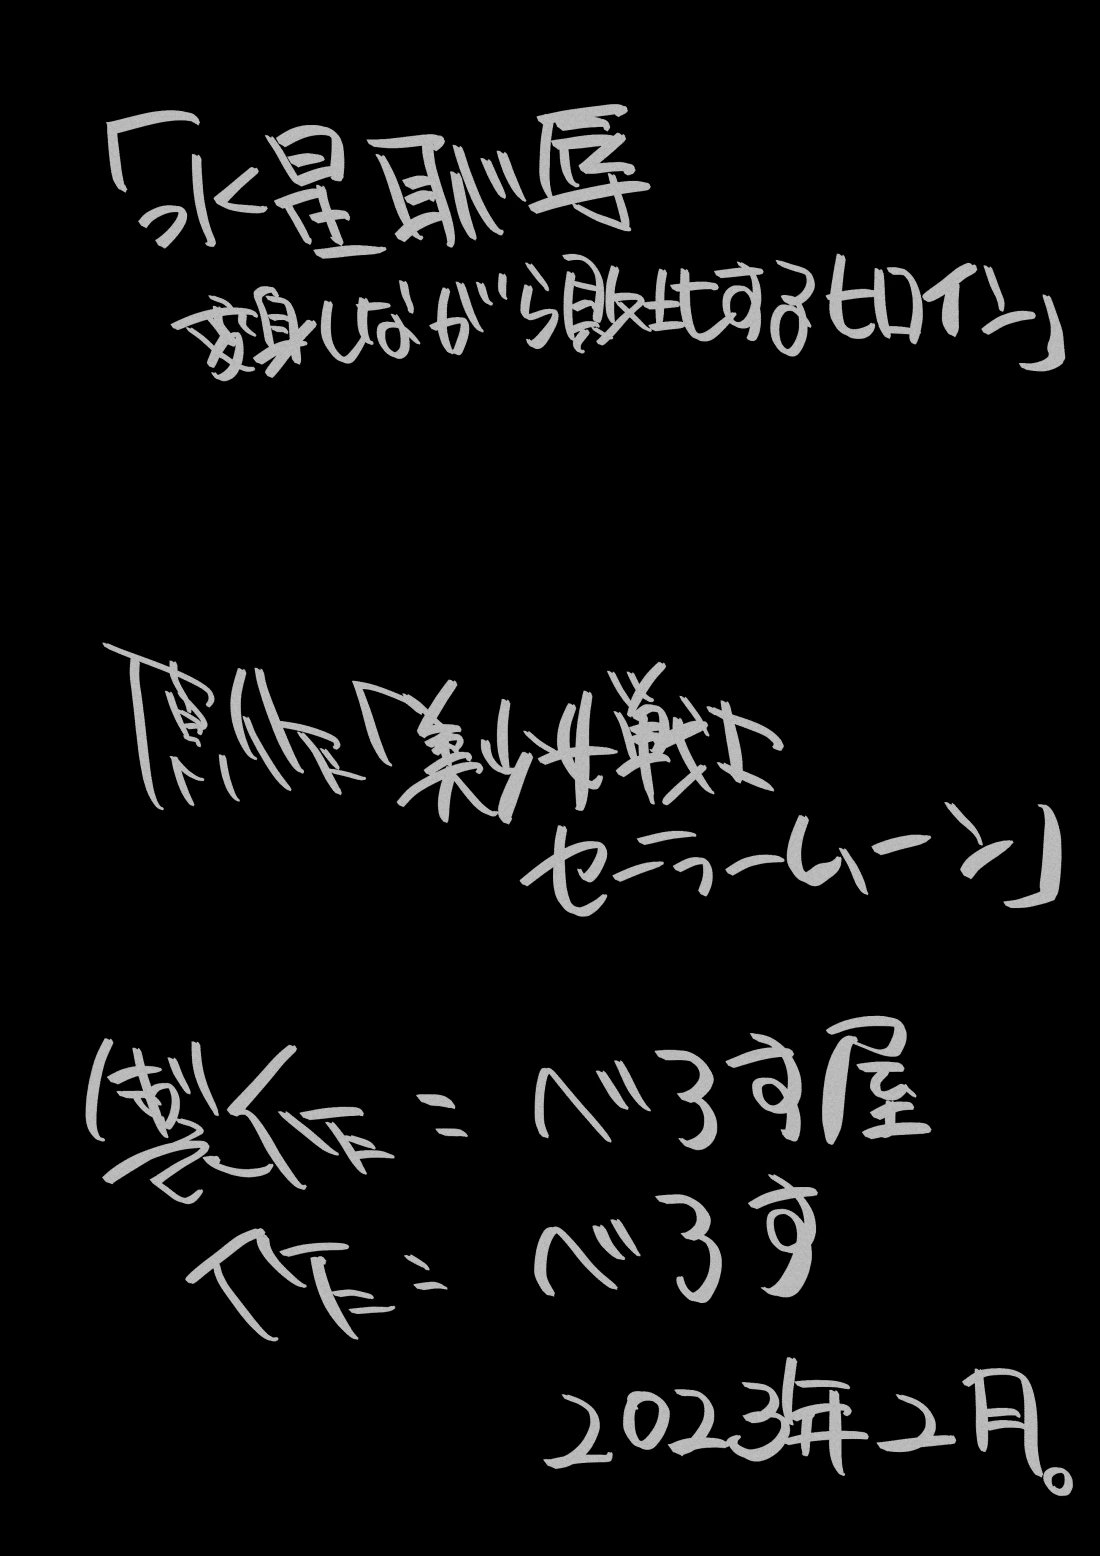 「水星恥辱
変身しながら敗北するヒロイン」
原作「美少女戦士
セーラームーン」
製作= べろす屋
作= べろす
2023年2月。